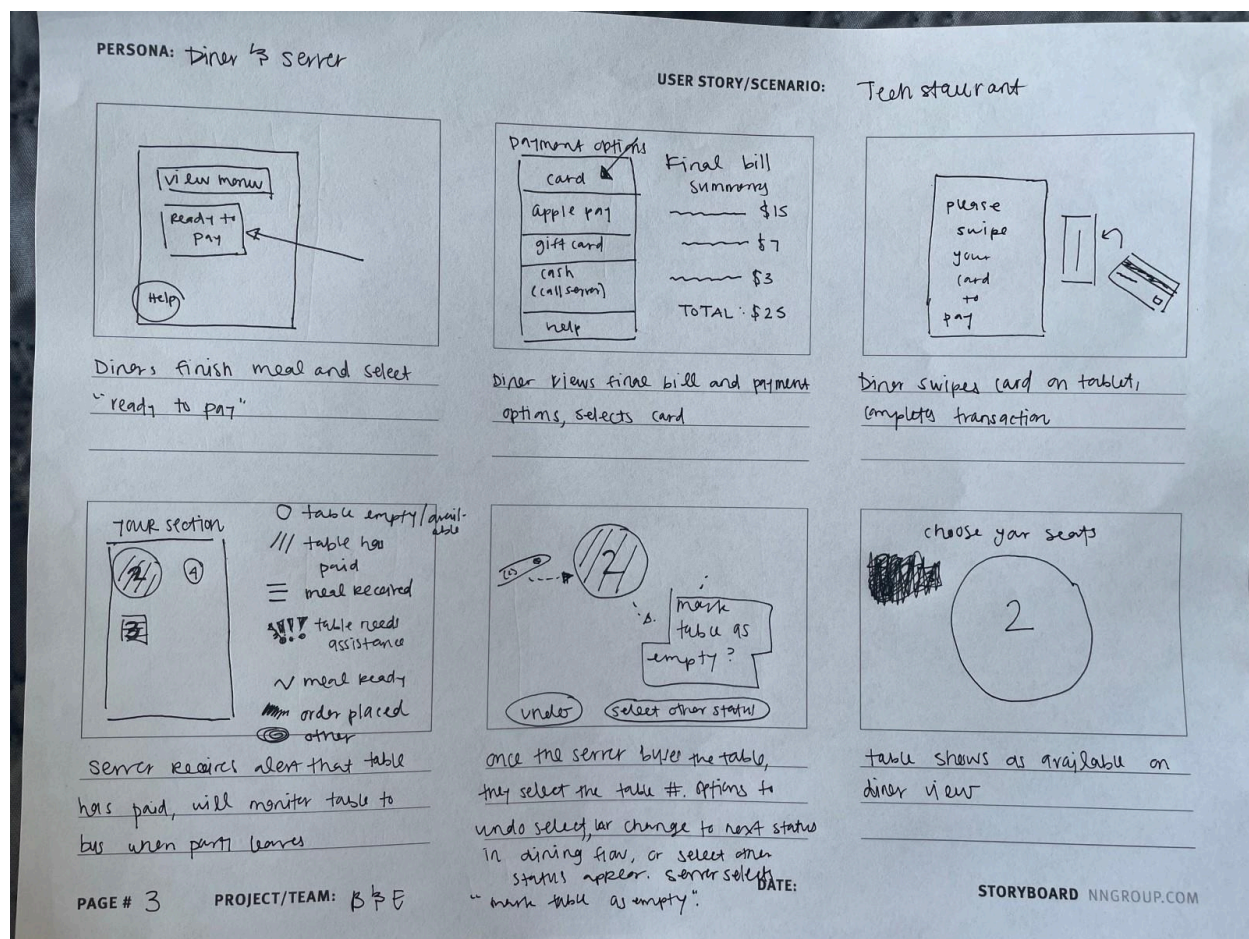 PERSONA: Diner & server
USER STORY/SCENARIO: Techstaurant
view menu
Ready to
pay
Help
Diners finish meal and select
"ready to pay"
payment options
card
apple pay
gift card
cash
(call server)
help
Final bill
summary
$15
$7
$3
TOTAL: $25
Diner views final bill and payment
options, selects card
please
swipe
your
card
to
pay
Diner swipes card on tablet,
completes transaction
your section
2
4
3
O table empty/avail-
able
/// table has
paid
meal received
!!! table needs
assistance
meal ready
order placed
other
server receives alert that table
has paid, will monitor table to
bus when party leaves
2
mark
table as
empty?
undo
select other status
once the server buses the table,
they select the table #. options to
undo select, or change to next status
in dining flow, or select other
status appear. server selects
"mark table as empty".
choose your seats
2
table shows as available on
diner view
PAGE # 3
PROJECT/TEAM: B & E
DATE:
STORYBOARD NNGROUP.COM